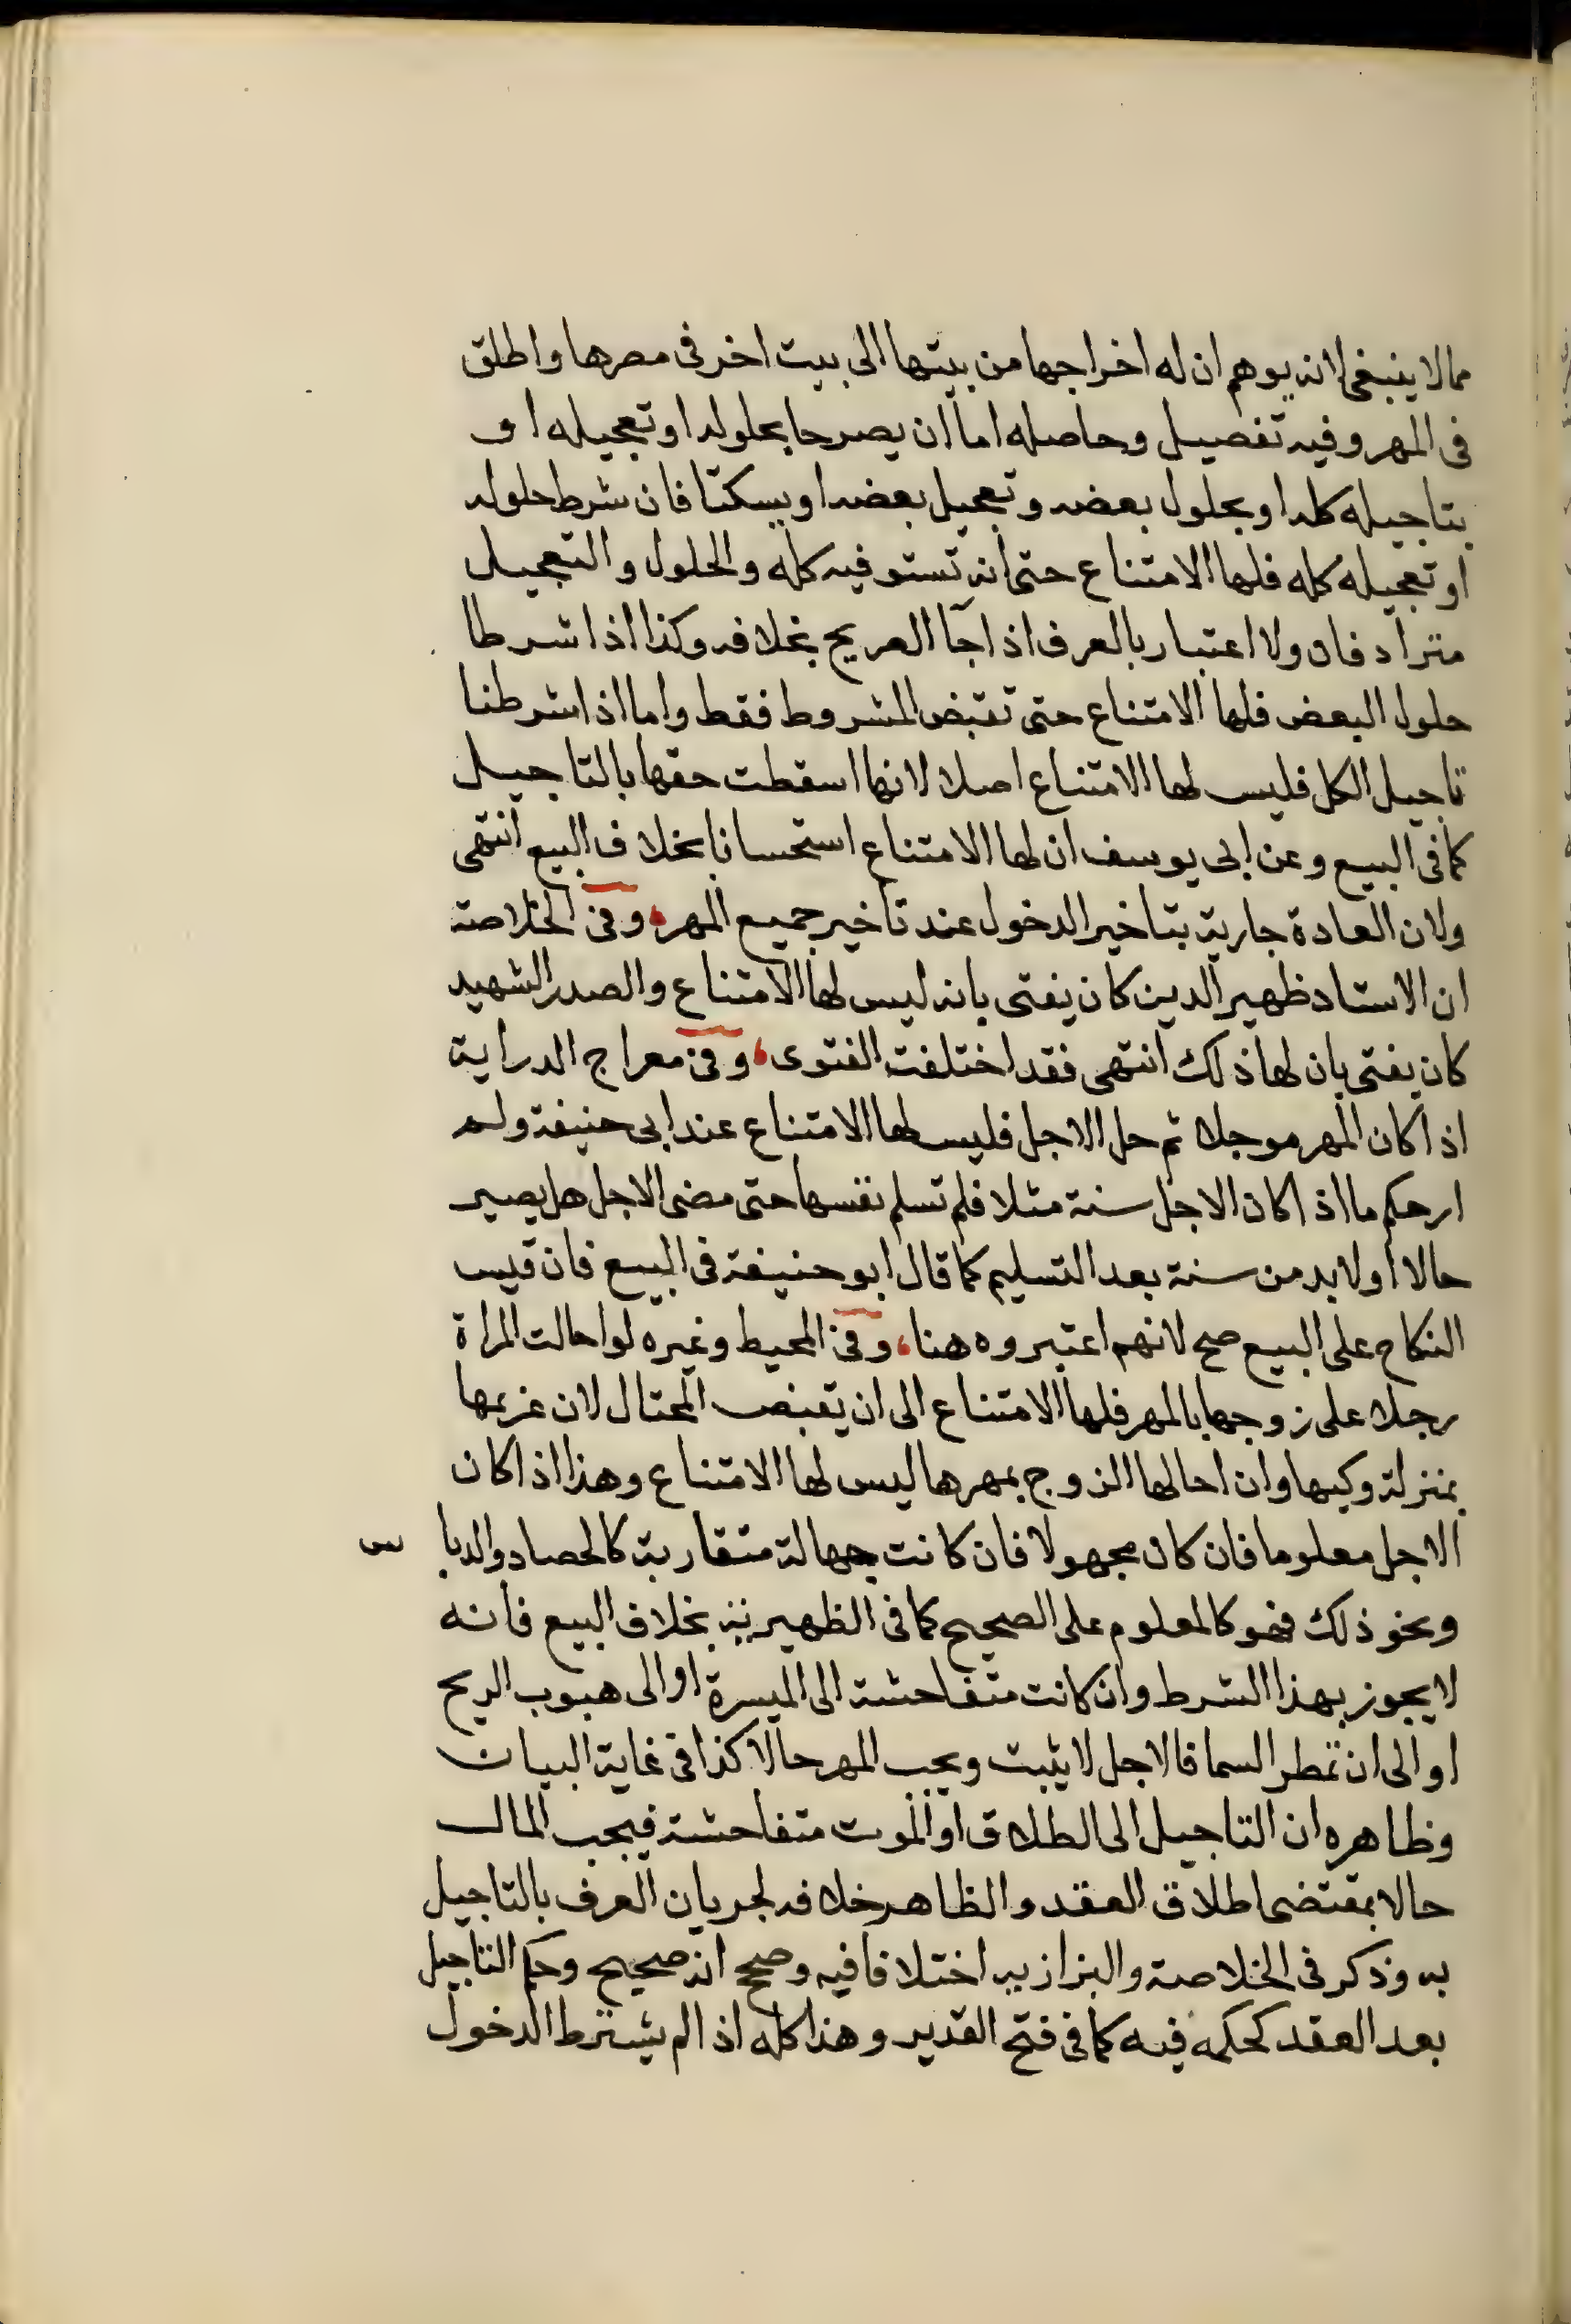 مما لا ينبغي لانه يوهم ان له اخراجها من بيتها الى بيت اخر فى مصرها واطلق
فى المهر وفيه تفصيل وحاصله اما ان يصرحا بحلوله او تعجيله او
بتاجيله كله او بحلول بعضه وتعجيل بعضه او يسكتا فان شرط حلوله
او تعجيله كله فلها الامتناع حتى انه تستوفيه كله والحلول والتعجيل
مترادفان ولا اعتبار بالعرف اذا جآ الصريح بخلافه وكذا اذا شرطا
حلول البعض فلها الامتناع حتى تقبض المشروط فقط واما اذا شرطنا
تاجيل الكل فليس لها الامتناع اصلا لانها اسقطت حقها بالتاجيل
كما فى البيع وعن ابى يوسف ان لها الامتناع استحسانا بخلاف البيع انتهى
ولان العادة جارية بتاخير الدخول عند تاخير جميع المهر، وفى الخلاصة
ان الاستاد ظهير الدين كان يفتى بانه ليس لها الامتناع والصدر الشهيد
كان يفتى بان لها ذلك انتهى فقد اختلفت الفتوى، وفى معراج الدراية
اذا كان المهر موجلا ثم حل الاجل فليس لها الامتناع عند ابى حنيفة ولم
ار حكم ما اذا كان الاجل سنة مثلا فلم تسلم نفسها حتى مضى الاجل هل يصير
حالا او لابد من سنة بعد التسليم كما قال ابو حنيفة فى البيع فان قيس
النكاح على البيع صح لانهم اعتبروه هنا، وفى المحيط وغيره لو احالت المراة
رجلا على زوجها بالمهر فلها الامتناع الى ان يقبض المحتال لان غريمها
بمنزلة وكيها وان احالها الزوج بمهرها ليس لها الامتناع وهذا اذا كان
الاجل معلوما فان كان مجهولا فان كانت جهالة متقاربة كالحصاد والديا س
ونحو ذلك فهو كالمعلوم على الصحيح كما فى الظهيرية بخلاف البيع فانه
لا يجوز بهذا الشرط وان كانت متفاحشة الى الميسرة او الى هبوب الريح
او الى ان تمطر السما فالاجل لا يثبت ويجب المهر حالا كذا فى غاية البيان
وظاهره ان التاجيل الى الطلاق او الموت متفاحشة فيجب المال
حالا بمقتضى اطلاق العقد والظاهر خلافه لجريان العرف بالتاجيل
به وذكر فى الخلاصة والبزازيه اختلافا فيه وصحح انه صحيح وحكم التاجيل
بعد العقد كحكمه فيه كما فى فتح القدير وهذا كله اذا لم يشترط الدخول